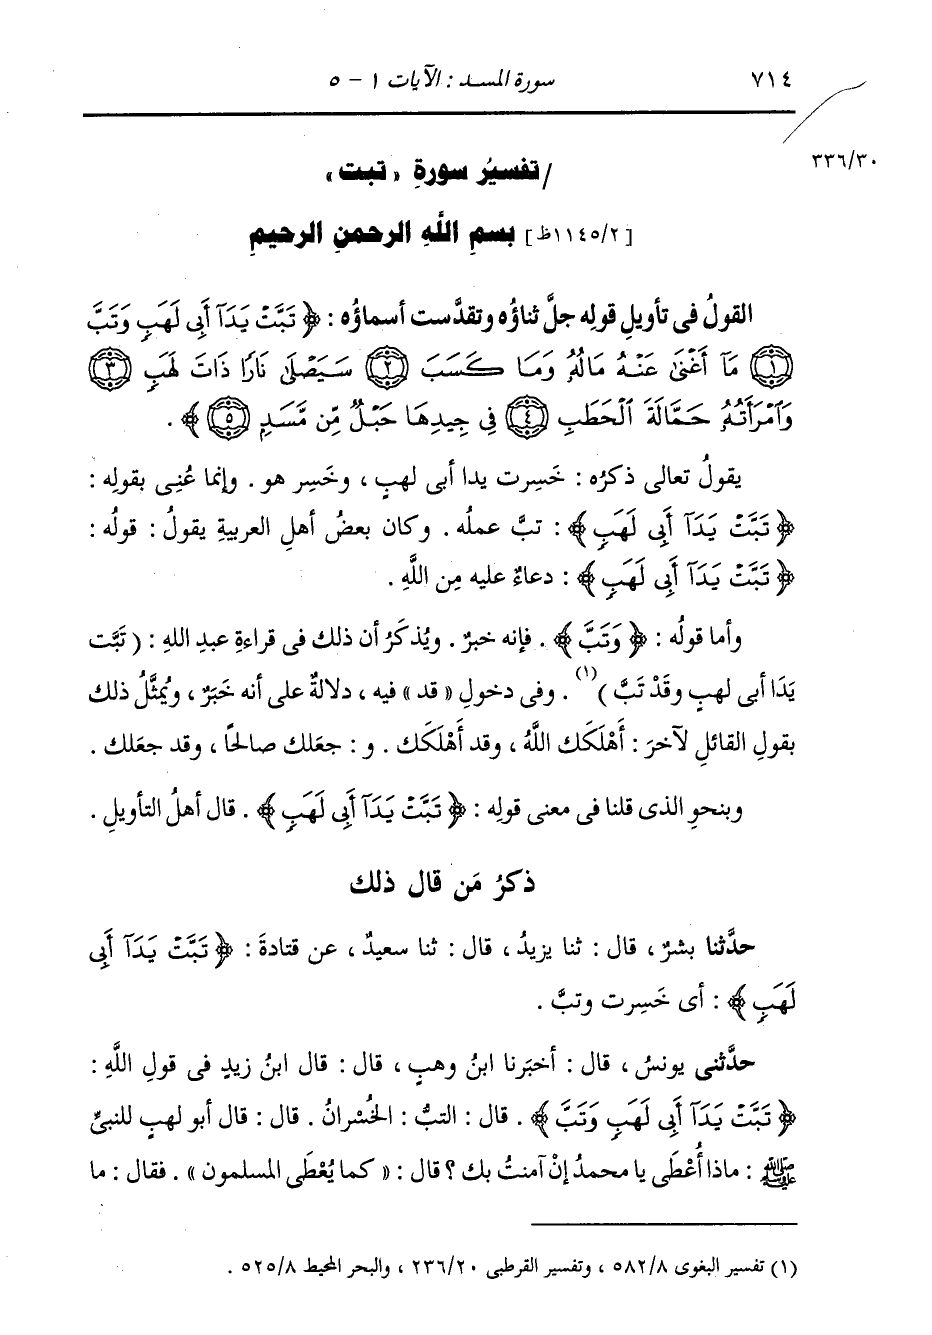 ٧١٤ سورة المسد : الآيات ١ - ٥
٣٣٦/٣٠
/ تفسيرُ سورةِ « تبت »
[ ١١٤٥/٢ظ ] بسمِ اللَّهِ الرحمنِ الرحيمِ
القولُ فى تأويلِ قولِه جلَّ ثناؤُه وتقدَّست أسماؤُه : ﴿ تَبَّتْ يَدَآ أَبِى لَهَبٍ وَتَبَّ
﴿١﴾ مَآ أَغْنَىٰ عَنْهُ مَالُهُۥ وَمَا كَسَبَ ﴿٢﴾ سَيَصْلَىٰ نَارًا ذَاتَ لَهَبٍ ﴿٣﴾
وَٱمْرَأَتُهُۥ حَمَّالَةَ ٱلْحَطَبِ ﴿٤﴾ فِى جِيدِهَا حَبْلٌ مِّن مَّسَدٍۭ ﴿٥﴾ ﴾ .
يقولُ تعالى ذكرُه : خَسِرت يدا أبى لهبٍ ، وخَسِر هو . وإنما عُنِى بقولِه :
﴿ تَبَّتْ يَدَآ أَبِى لَهَبٍ ﴾ : تبَّ عملُه . وكان بعضُ أهلِ العربيةِ يقولُ : قولُه :
﴿ تَبَّتْ يَدَآ أَبِى لَهَبٍ ﴾ : دعاءٌ عليه مِن اللَّهِ .
وأما قولُه : ﴿ وَتَبَّ ﴾ . فإنه خبرٌ . ويُذكَرُ أن ذلك فى قراءةِ عبدِ اللهِ : ( تَبَّت
يَدَا أبى لهبٍ وقَدْ تَبَّ )(١) . وفى دخولِ « قد » فيه ، دلالةٌ على أنه خَبَرٌ ، ويُمثَّلُ ذلك
بقولِ القائلِ لآخرَ : أَهْلَكَك اللَّهُ ، وقد أَهْلَكك . و : جعَلك صالحًا ، وقد جعَلك .
وبنحوِ الذى قلنا فى معنى قولِه : ﴿ تَبَّتْ يَدَآ أَبِى لَهَبٍ ﴾ . قال أهلُ التأويلِ .
ذكرُ مَن قال ذلك
حدَّثنا بشرٌ ، قال : ثنا يزيدُ ، قال : ثنا سعيدٌ ، عن قتادةَ : ﴿ تَبَّتْ يَدَآ أَبِى
لَهَبٍ ﴾ : أى خَسِرت وتبَّ .
حدَّثنى يونسُ ، قال : أخبَرنا ابنُ وهبٍ ، قال : قال ابنُ زيدٍ فى قولِ اللَّهِ :
﴿ تَبَّتْ يَدَآ أَبِى لَهَبٍ وَتَبَّ ﴾ . قال : التبُّ : الخُسْرانُ . قال : قال أبو لهبٍ للنبىِّ
ﷺ : ماذا أُعْطَى يا محمدُ إنْ آمنتُ بك ؟ قال : « كما يُعْطَى المسلمون » . فقال : ما
(١) تفسير البغوى ٥٨٢/٨ ، وتفسير القرطبى ٢٣٦/٢٠ ، والبحر المحيط ٥٢٥/٨ .